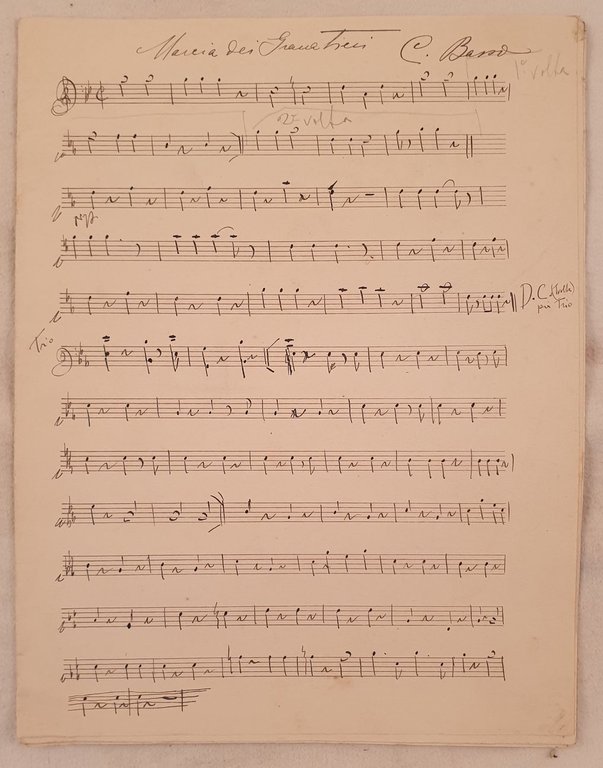 Marcia dei Granatieri C. Basso
1ª volta
2ª volta
mf
D. C. (volta)
poi Trio
Trio